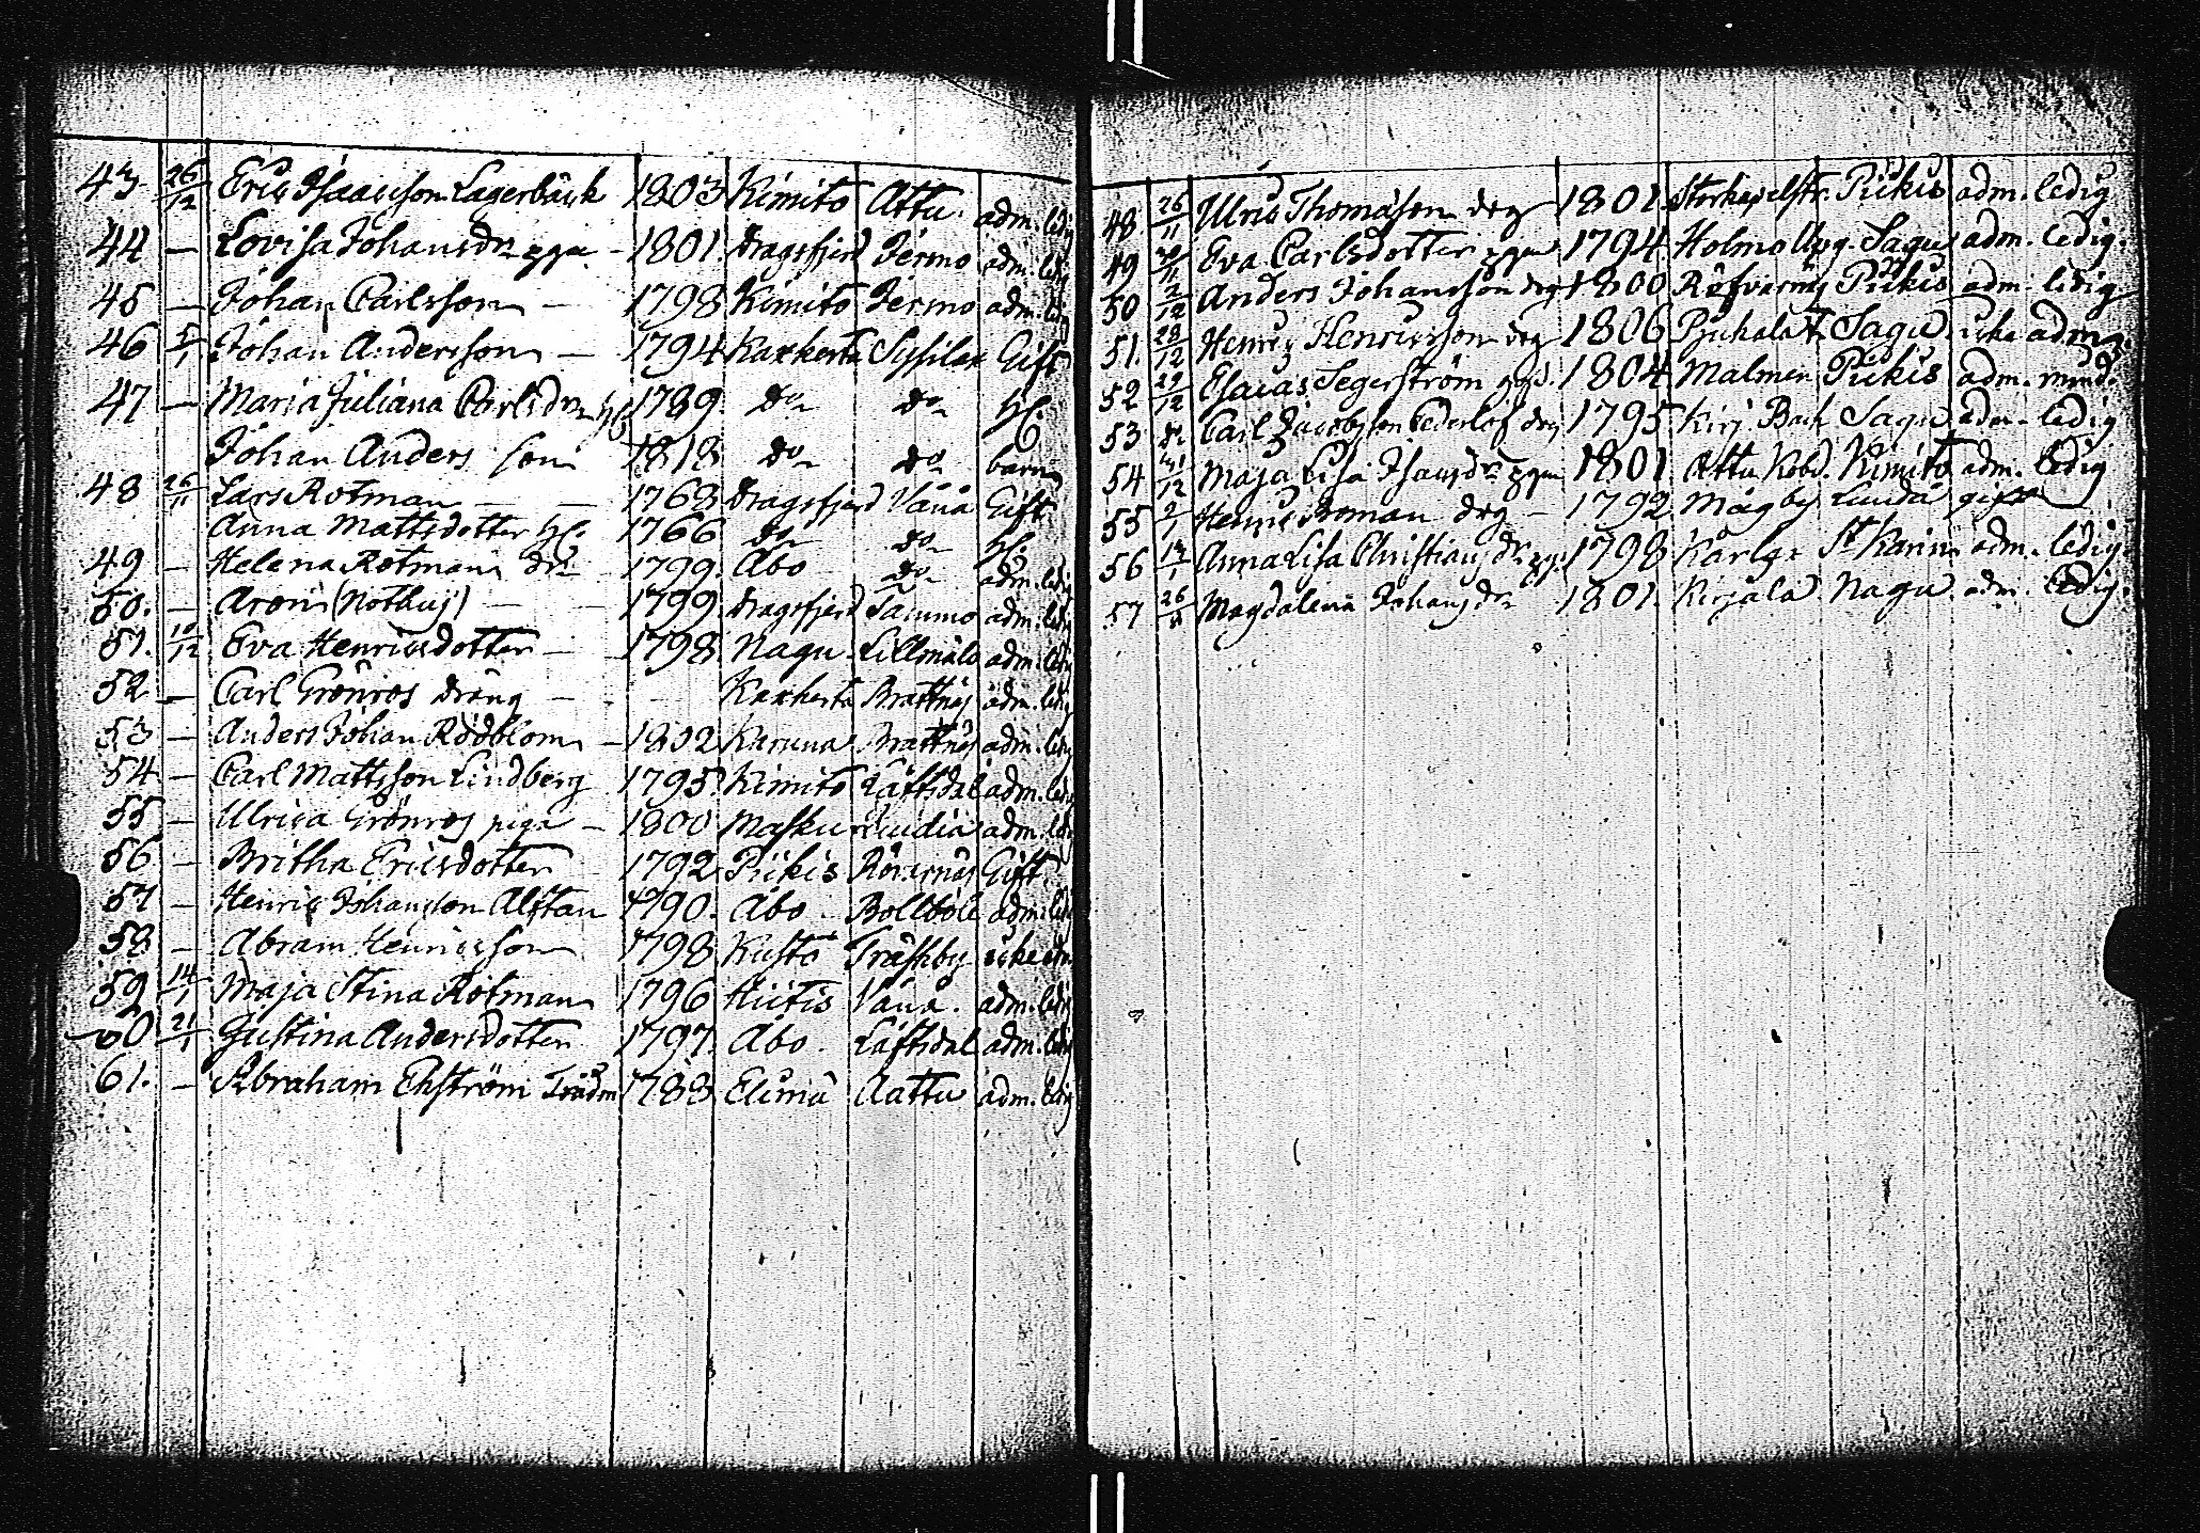 43. 26/12 Eric Isaacsson Lagerbäck 1803 Kimito Attu. adm. ledig
44 — Lovisa Johansdr pga - 1801. Dragsfjerd Jermo adm. ledig
45 — Johan Carlsson — 1798 Kimito Jermo adm. ledig
46 5/1 Johan Andersson — 1794 Kaxkerta Sysilax Gift
47 — Maria Juliana Carlsdr H. 1789 do do H.
Johan Anders son 1818 do do barn
48 26/11 Lars Rotman — 1768 Dragsfjerd Vånå Gift
Anna Mattsdotter H. 1766 do do H.
49 — Helena Rotman dr 1799. Åbo do adm. ledig
50. — Aron (Nothus) — 1799. Dragsfjerd Sammo adm. ledig
51. 10/12 Eva Henricsdotter — 1798. Nagu Lillmälö adm. ledig
52 — Carl Grönros dräng — Kaxkerta Brattnäs adm. ledig
53 — Anders Johan Rödblom — 1802 Karuna Brattnäs adm. ledig
54 — Carl Mattsson Lindberg 1795 Kimito Läftsdal adm. ledig
55 — Ulrica Grönros piga — 1800 Masku adm. ledig
56 — Britha Ericsdotter 1792 Piikis Gift.
57 — Henric Johansson Alstan 1790. Åbo Bollböle adm. ledig
58 — Abram Henricsson 1798 Kustö Träskby icke adm
59 14/1 Maja Stina Rotman 1796 Hiitis Vånå. adm. ledig
60 21/1 Justina Andersdotter 1797. Åbo. Läftsdal adm. ledig
61. — Abraham Ekström 1783 Elimä Aattu adm. ledig
48 26/11 Ulric Thomasson drg 1801. Storkapelstr. Piikis adm. ledig
49 Eva Carlsdotter pga 1794. Holmo Upg. Sagu adm. ledig.
50 2/12 Anders Johansson drg 1800 Röfvarnäs Piikis adm. ledig
51. 28/12 Henric Henricsson drg 1806 Sagu. icke adm.
52 29/12 Esaias Segerström 1804 Malmen Piikis adm.
53 do Carl Jacobsson Cederlöf drg 1795 Kirj. Back Sagu adm. ledig
54 31/12 Maja Lisa Isacsdr pga 1801. Attu Kimito adm. ledig
55 2/1 Henric Roman drg — 1792 Mågby Lundå gift
56 14/1 Anna Lisa Christiansdr pg. 1798 Karlq. St Karins adm. ledig.
57 26/ Magdalena Johansdr 1801. Kirjala Nagu. adm. ledig.